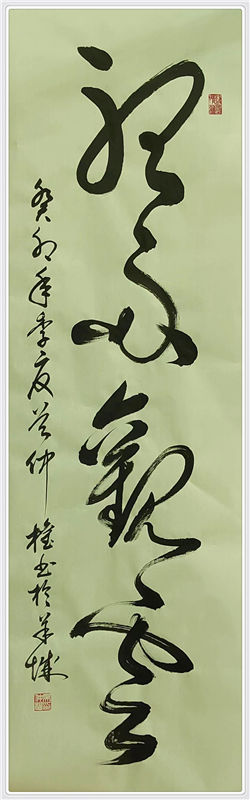 聽雨觀雲
癸卯年季夏仲權書於羊城